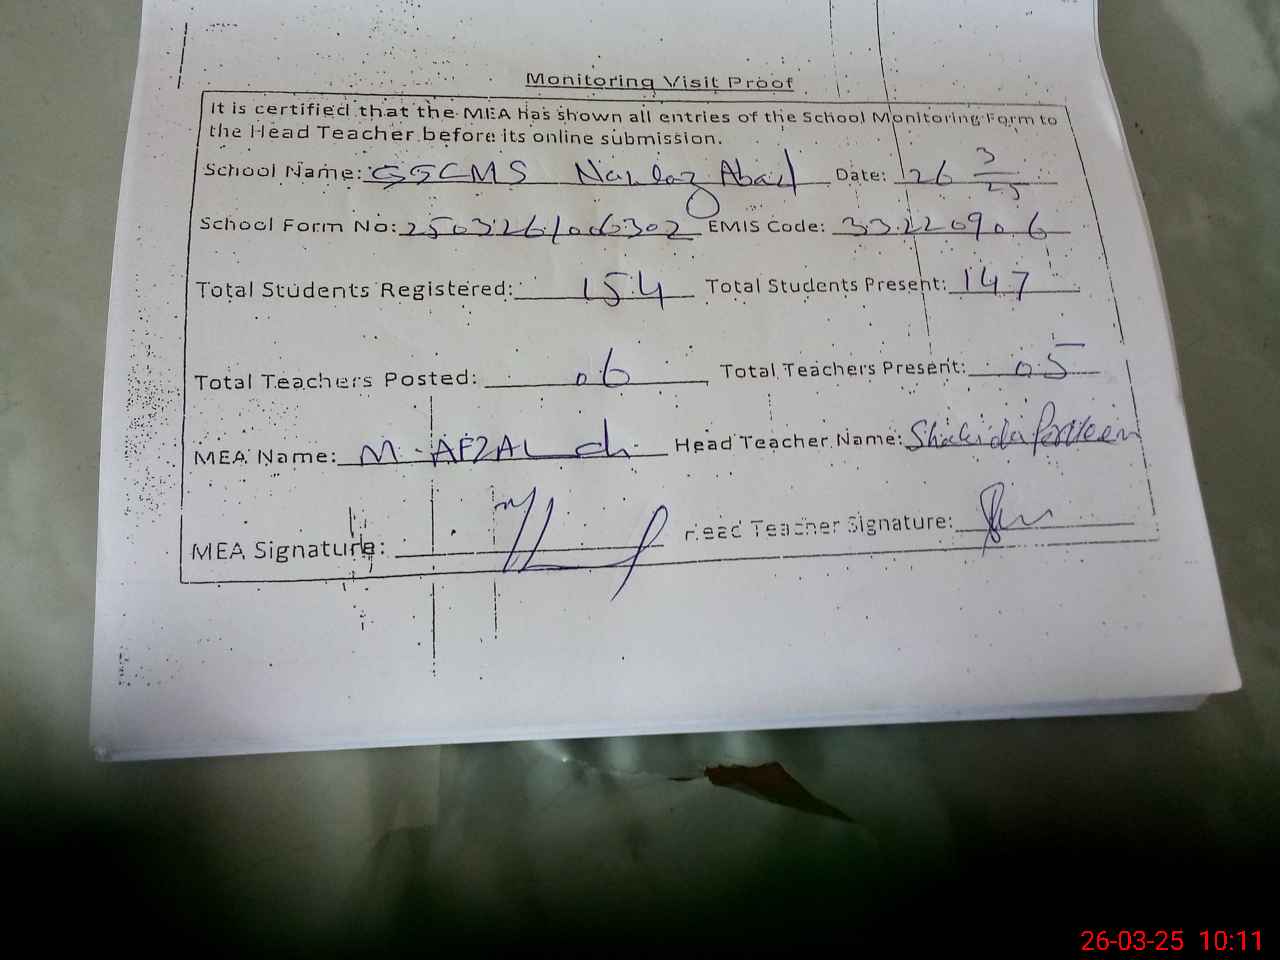 Monitoring Visit Proof
It is certified that the MEA has shown all entries of the School Monitoring Form to
the Head Teacher before its online submission.
School Name: GSCMS Nawaz Abad Date: 26 3/25
School Form No: 250326/006302 EMIS Code: 33220906
Total Students Registered: 154 Total Students Present: 147
Total Teachers Posted: 06 Total Teachers Present: 05
MEA Name: M. AFZAL ch. Head Teacher Name: Shahida Parveen
MEA Signature: Head Teacher Signature:
26-03-25 10:11